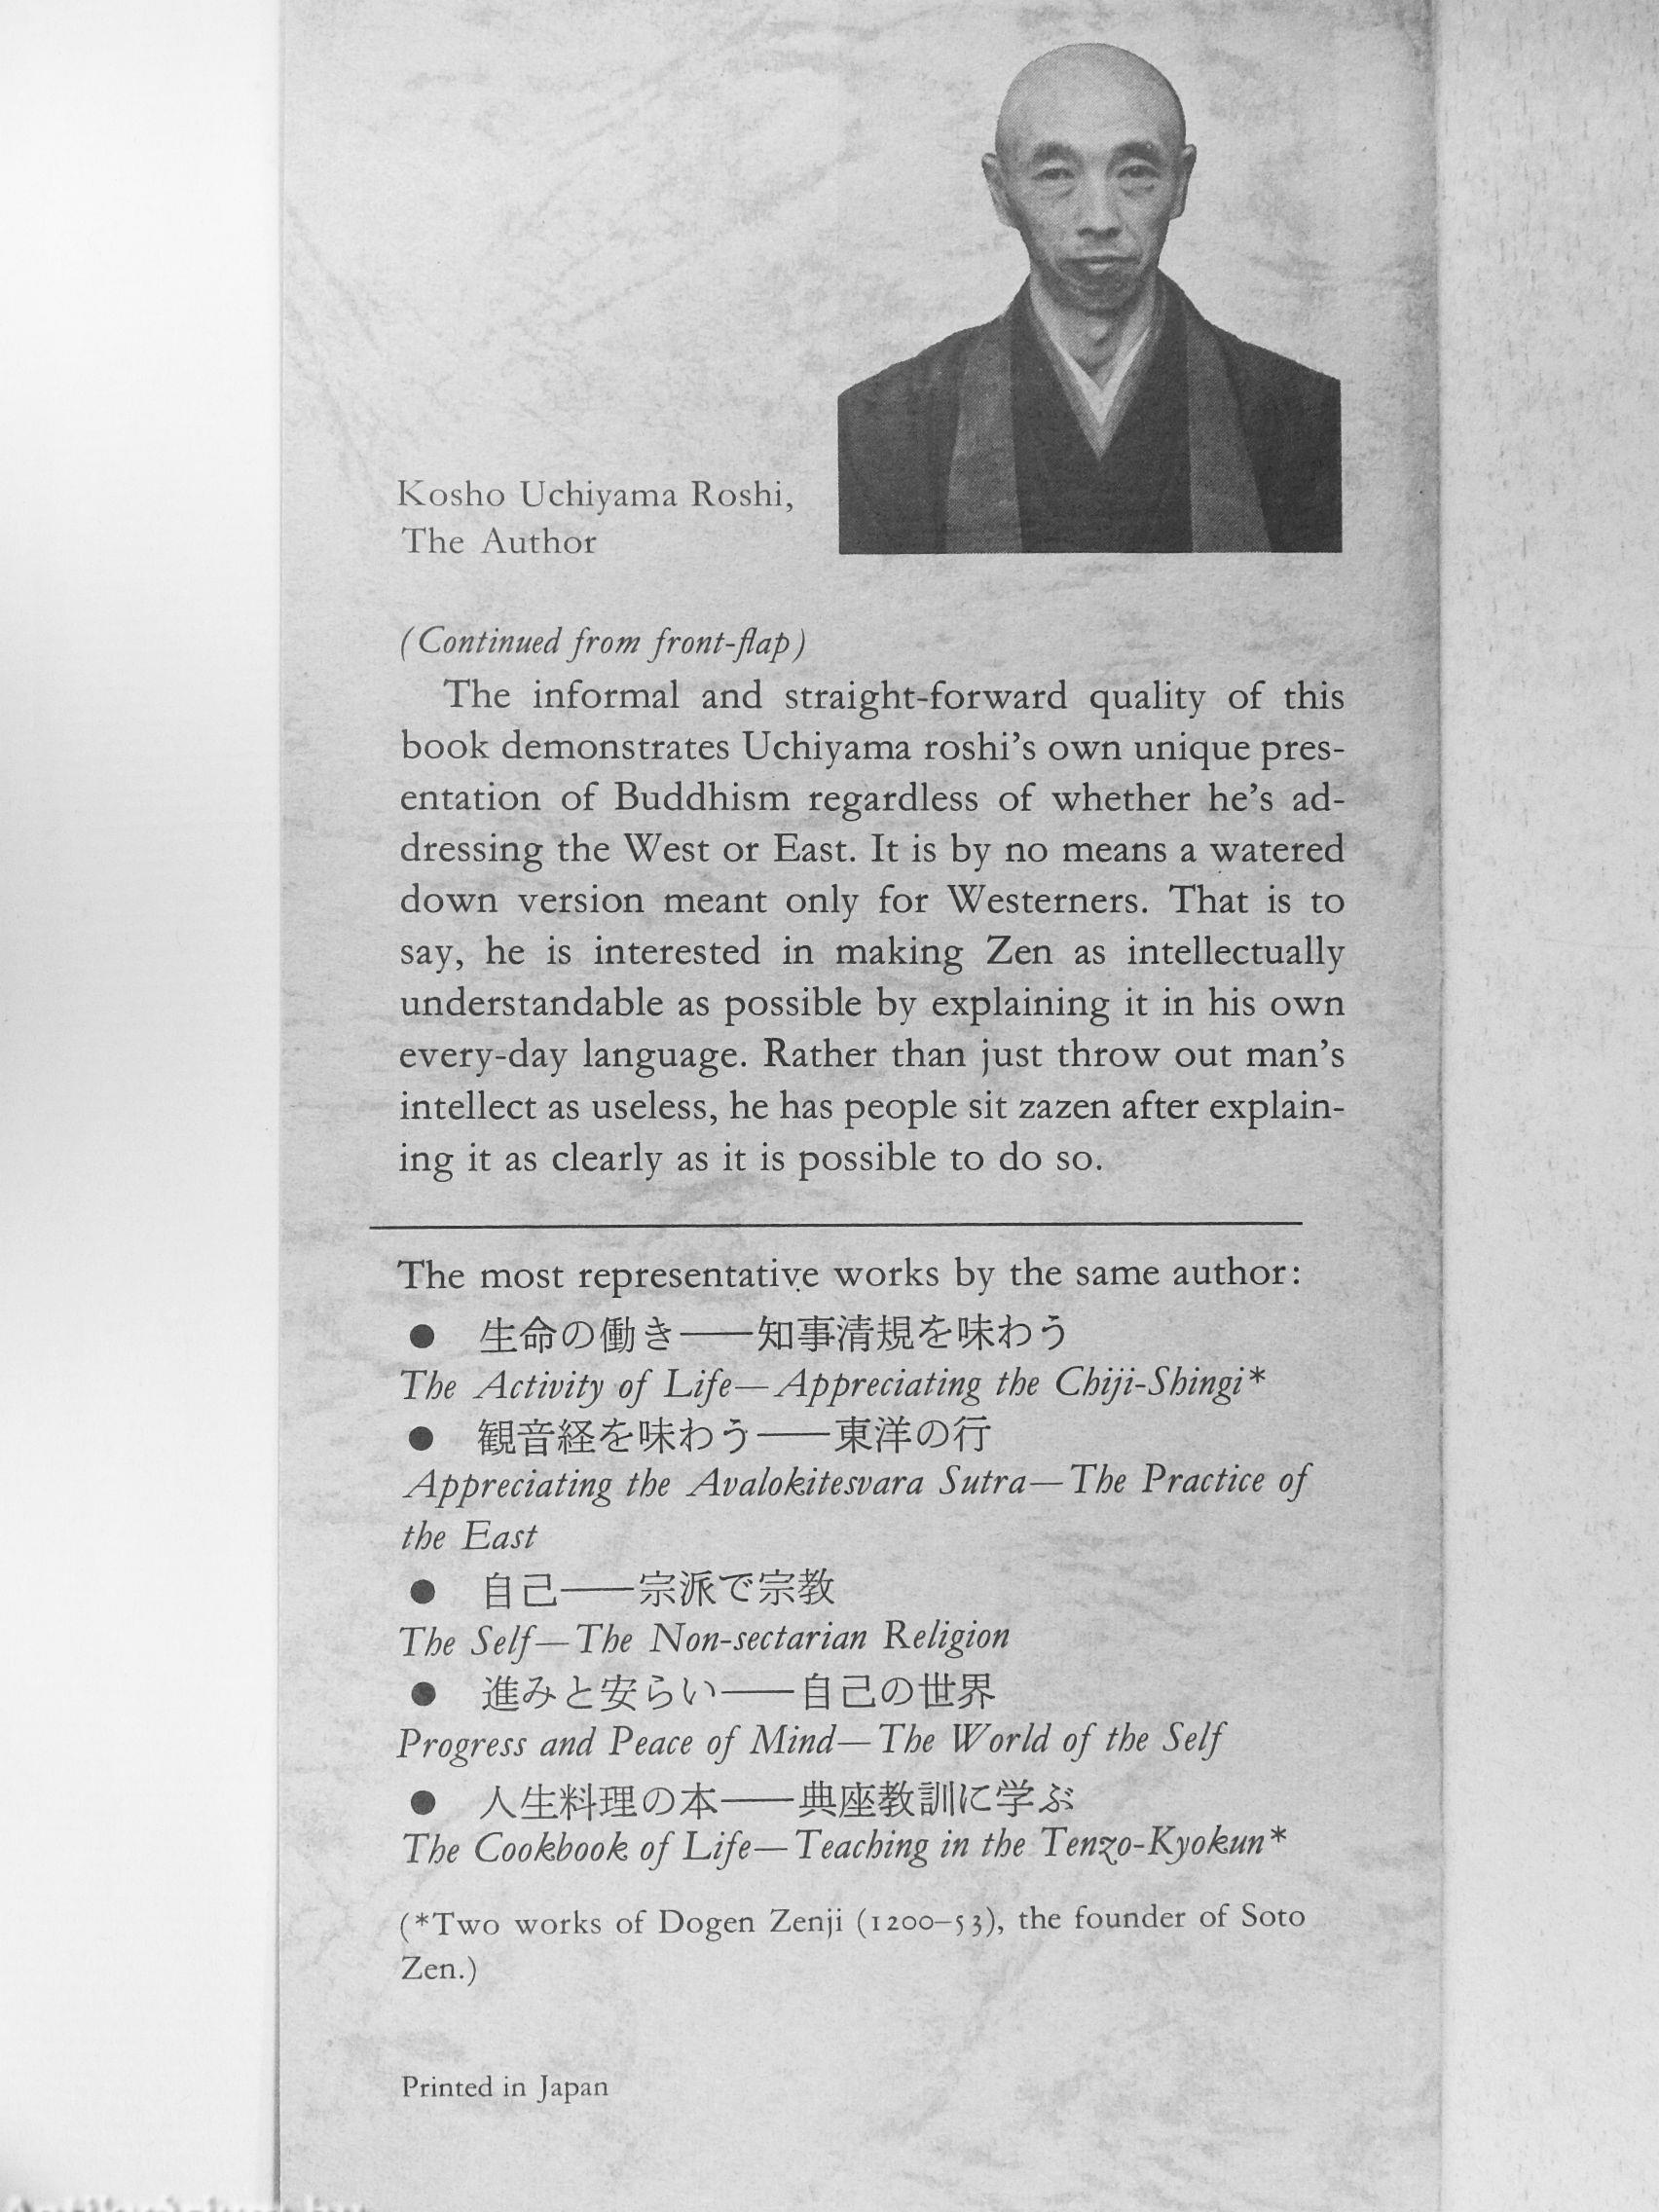 Kosho Uchiyama Roshi,
The Author
(Continued from front-flap)
The informal and straight-forward quality of this
book demonstrates Uchiyama roshi's own unique pres-
entation of Buddhism regardless of whether he's ad-
dressing the West or East. It is by no means a watered
down version meant only for Westerners. That is to
say, he is interested in making Zen as intellectually
understandable as possible by explaining it in his own
every-day language. Rather than just throw out man's
intellect as useless, he has people sit zazen after explain-
ing it as clearly as it is possible to do so.
The most representative works by the same author:
● 生命の働き——知事清規を味わう
The Activity of Life—Appreciating the Chiji-Shingi*
● 観音経を味わう——東洋の行
Appreciating the Avalokitesvara Sutra—The Practice of
the East
● 自己——宗派で宗教
The Self—The Non-sectarian Religion
● 進みと安らい——自己の世界
Progress and Peace of Mind—The World of the Self
● 人生料理の本——典座教訓に学ぶ
The Cookbook of Life—Teaching in the Tenzo-Kyokun*
(*Two works of Dogen Zenji (1200–53), the founder of Soto
Zen.)
Printed in Japan